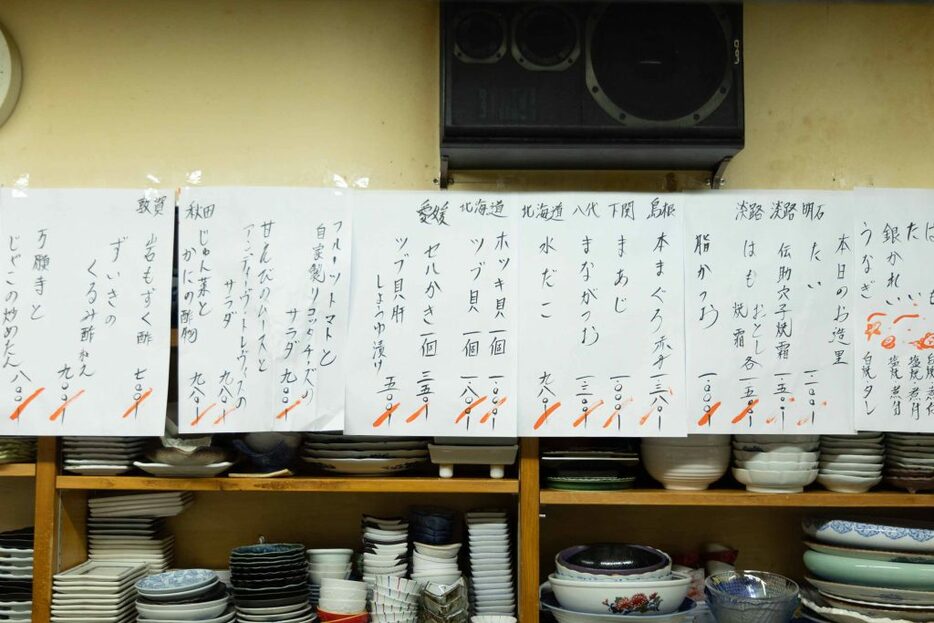 たい 塩焼 煮付
銀かれい 塩焼 煮付
うなぎ 白焼 タレ
本日のお造里
明石 たい 一二〇〇
淡路 伝助穴子焼霜 一五〇〇
淡路 はも おとし 焼霜 各一五〇〇
脂かつお 一〇〇〇
島根 本まぐろ赤身 一三八〇
下関 まあじ 一〇〇〇
八代 まながつお
北海道 水だこ 九八〇
北海道 ホッキ貝 一個 一〇〇〇
ツブ貝 一個 一八〇〇
愛媛 セルかき 一個 三五〇
ツブ貝肝
しょうゆ漬け 五〇〇
フルーツトマトと
自家製リコッタチーズの
サラダ 九〇〇
甘えびのムースと
アンディーヴ・トレヴィスの
サラダ 九八〇
秋田 じゅん菜と
かにの酢物 九八〇
敦賀 岩もずく酢 七〇〇
ずいきの
くるみ酢和え 九〇〇
万願寺と
じゃこの炒めたん 八〇〇